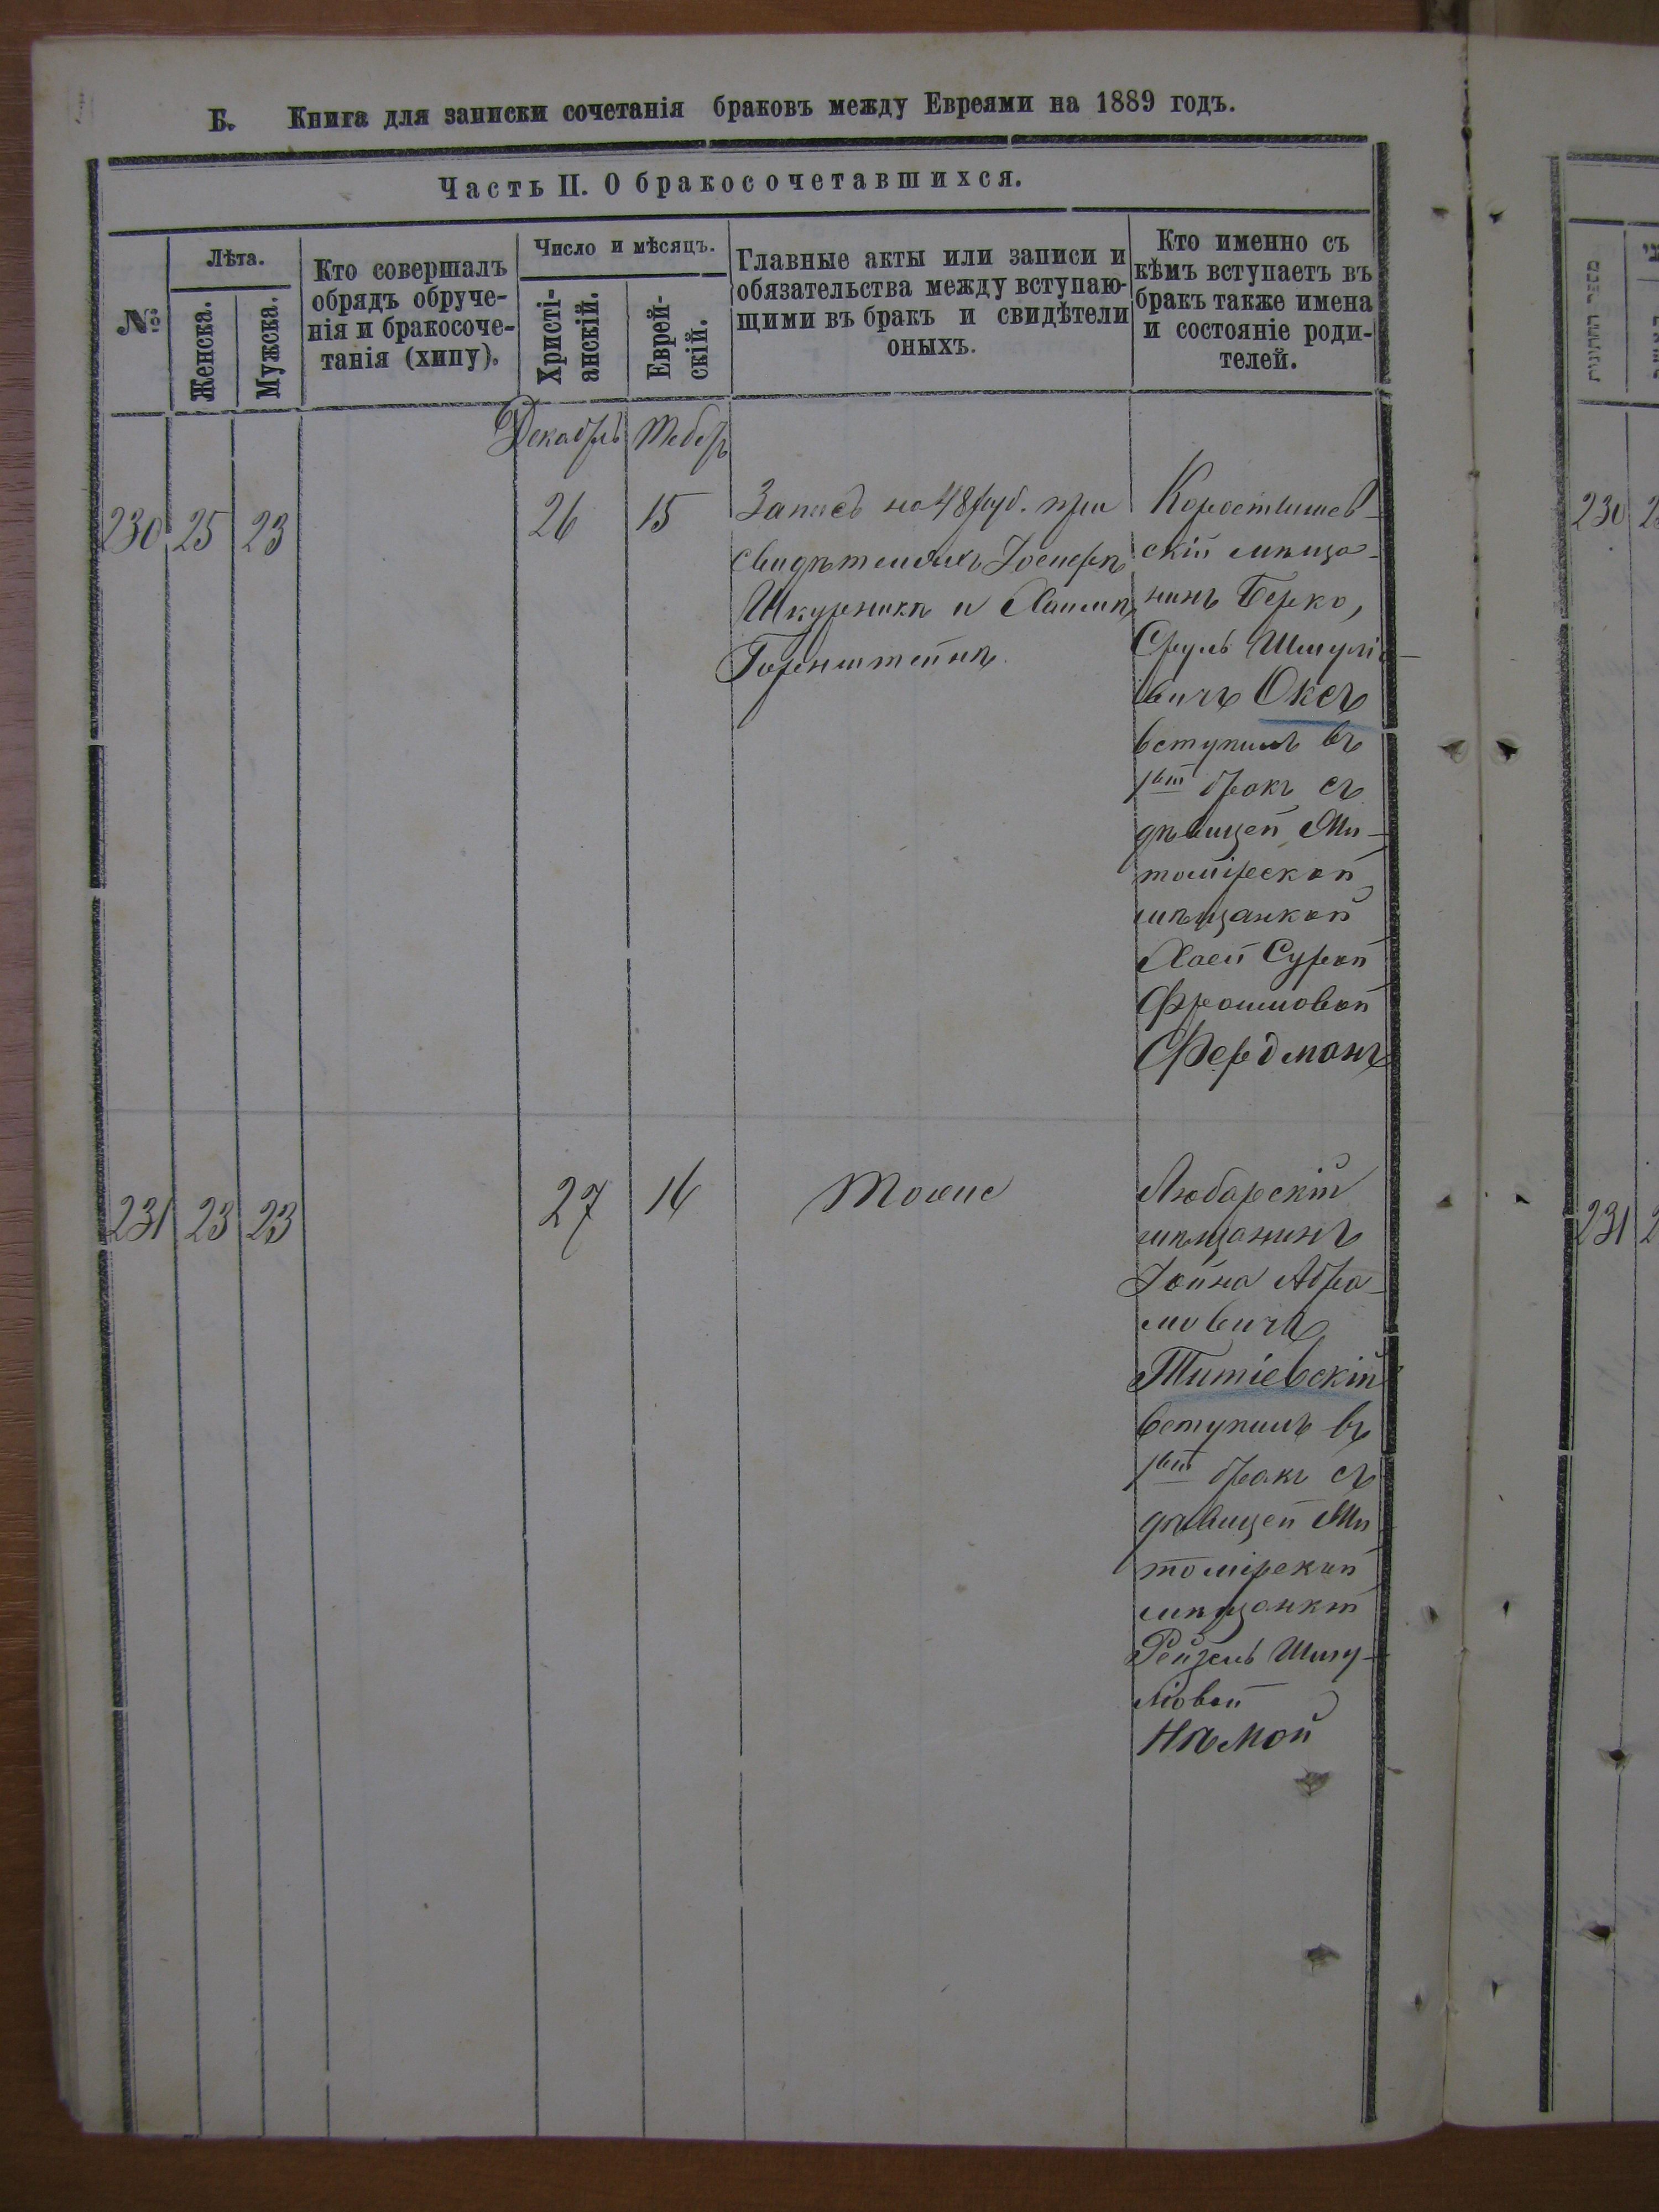 Б. Книга для записки сочетанія браковъ между Евреями на 1889 годъ.
Часть II. О бракосочетавшихся.
№
Лѣта.
Женска.
Мужска.
Кто совершалъ
обрядъ обруче-
нія и бракосоче-
танія (хипу).
Число и мѣсяцъ.
Христі-
анскій.
Еврей-
скій.
Главные акты или записи и
обязательства между вступаю-
щими въ бракъ и свидѣтели
оныхъ.
Кто именно съ
кѣмъ вступаетъ въ
бракъ также имена
и состояніе роди-
телей.
Декабрь Теберъ
230 25 23 26 15
Запись на 48 руб. при
свидѣтеляхъ Іосиფѣ
Шкурникѣ и Хаимѣ
Горенштейнѣ
Коростишев-
скій мѣща-
нинъ Берко,
Сруль Шмулі-
вичъ Оксъ
вступилъ въ
1вый бракъ съ
дѣвицей Жи-
томірской
мѣщанкой
Хаей Сурой
Фроимовой
Фердманъ
231 23 23 27 16
Тоже
Любарскій
мѣщанинъ
Іойна Абра-
мовичъ
Титіевскій
вступилъ въ
1вый бракъ съ
дѣвицей Жи
томірской
мѣщанкой
Рейзель Шму-
ліовой
Нѣмой
230
231